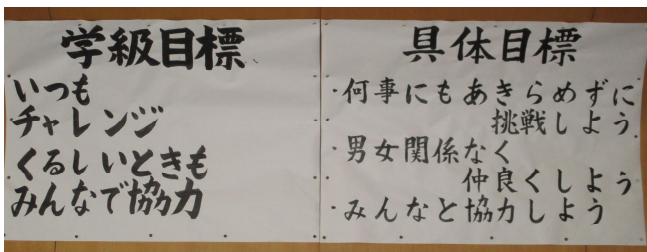 学級目標
いつも
チャレンジ
くるしいときも
みんなで協力
具体目標
・何事にもあきらめずに
挑戦しよう
・男女関係なく
仲良くしよう
・みんなと協力しよう